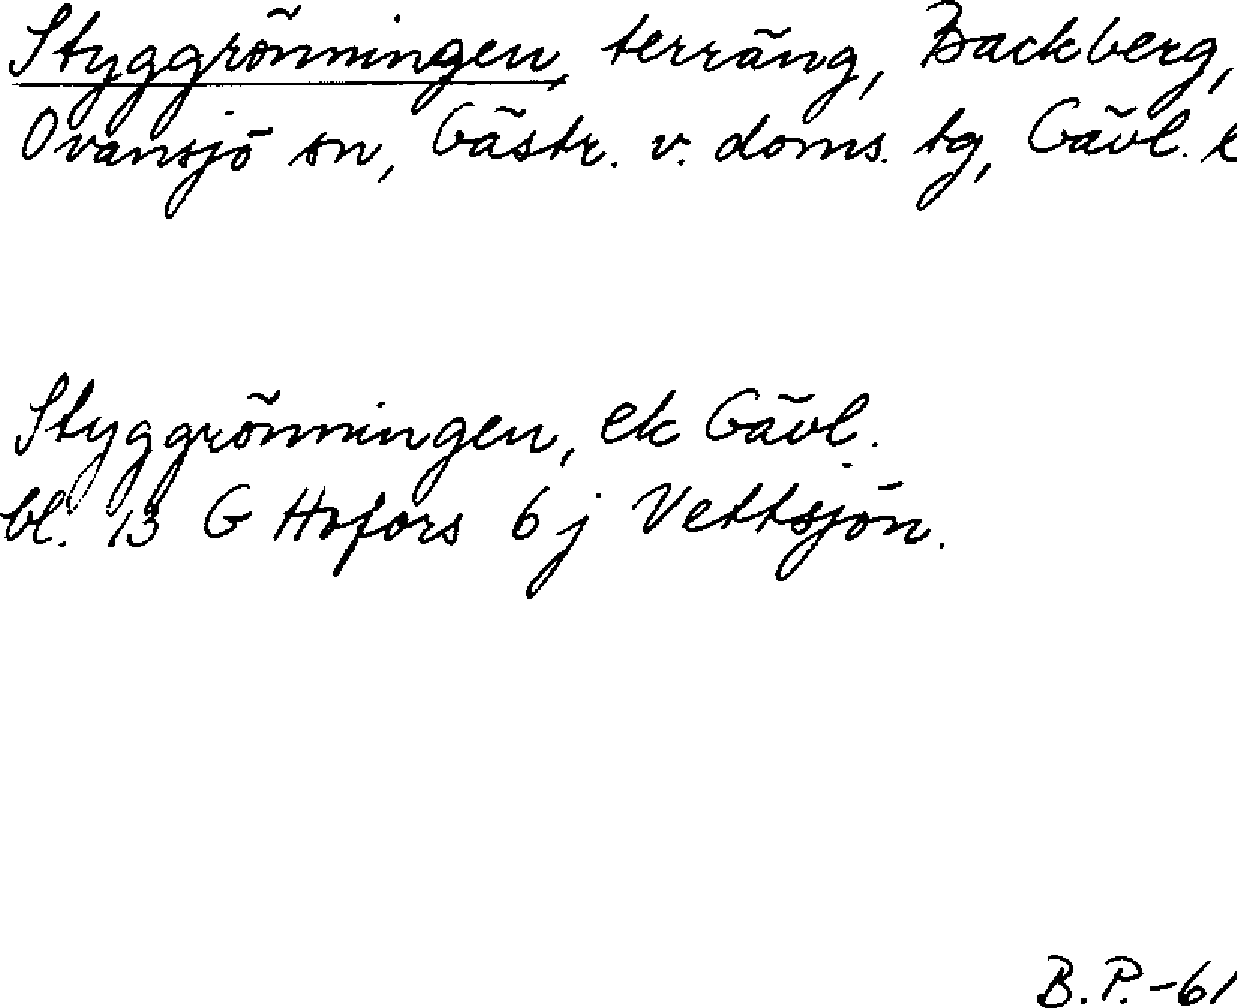 Styggrönningen, terräng, Backberg,
Ovansjö sn, Gästr. v. doms. tg, Gävl. l
Styggrönningen, ek Gävl.
bl. 13 G Hofors 6 j Vettsjön.
B.P. -61